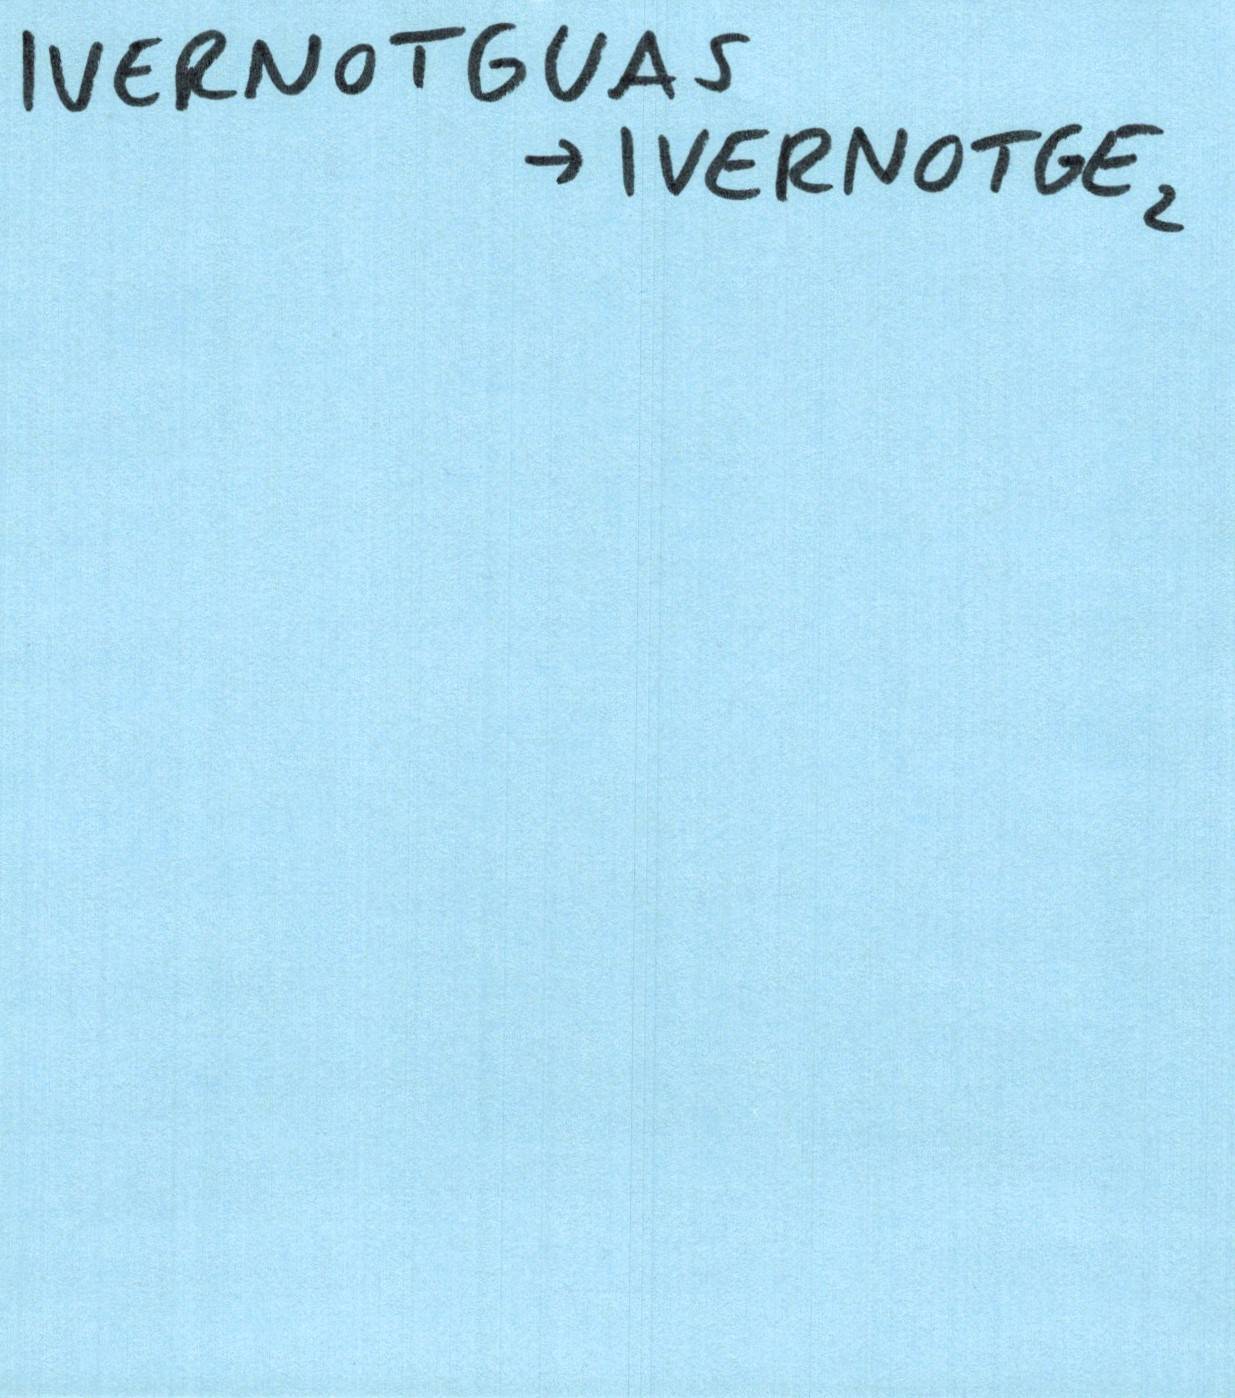 IVERNOTGUAS
→ IVERNOTGE₂